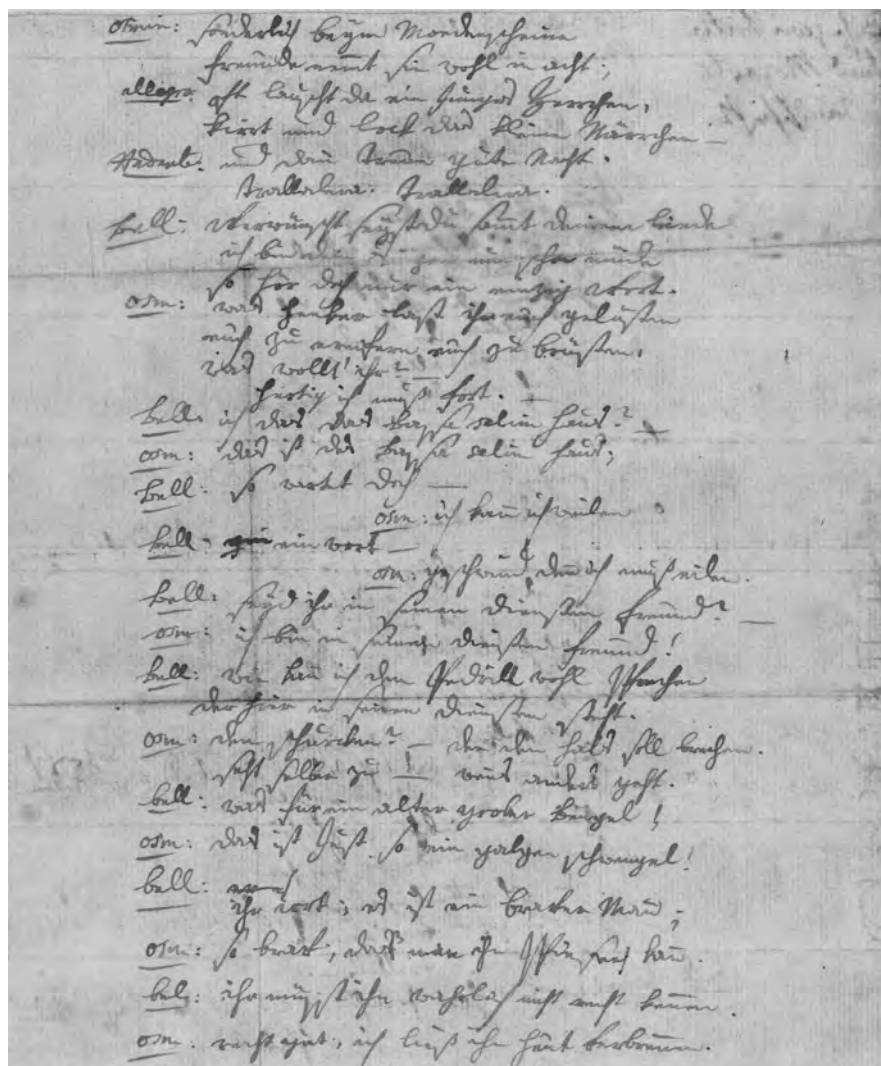 osmin: sonderlich beym Mondenscheine
freunde nemmt sie wohl in acht;
allegro: oft lauscht da ein Junges Herrchen,
kirrt und lock das kleine Närrchen —
Andante: und dann treue gute Nacht.
trallalera. trallalera.
bell: verwünscht seyst du sammt deinem liede
ich bin dein singen nun schon müde
so hör doch nur ein einzig Wort.
osm: was henker last ihr euch gelüsten
euch zu ereifern euch zu brüsten,
was wollt' ihr? —
hurtig ich muß fort. —
bell: ist das das Bassa selim haus? —
osm: das ist des Bassa selim haus;
Bell: so wartet doch —
osm: ich kann nicht weilen
bell: ein wort —
osm: geschwind, denn ich muß eilen.
bell: seyd ihr in seinen diensten freund? —
osm: ich bin in seinen diensten freund!
bell: wie kann ich den Pedrill wohl sprechen
der hier in seinen diensten steht.
osm: den schurken? — der den hals soll brechen.
seht selber zu — wens anders geht.
bell: was für ein alter grober bengel!
osm: das ist Just so ein galgen schwengel!
bell:
ihr irrt; es ist ein braver Mann;
osm: so brav; daß man ihn spiessen kann.
bel: ihr müsst ihn wahrlich nicht recht kennen.
osm: recht gut; ich ließ ihn heut verbrennen.